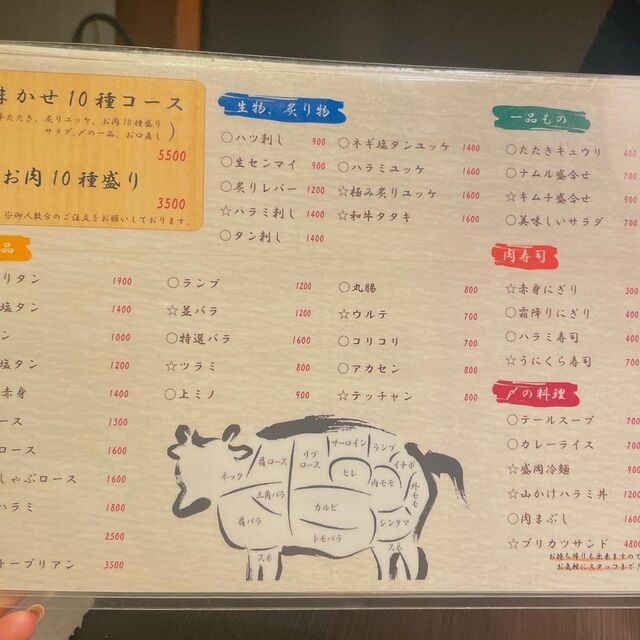 まかせ10種コース
牛たたき、炙りユッケ、お肉10種盛り
サラダ、〆の一品、お口直し)
5500
お肉10種盛り
3500
※御人数分のご注文をお願いしております。
生物、炙り物
○ハツ刺し 900
○生センマイ 900
○炙りレバー 1200
☆ハラミ刺し 1400
○タン刺し 1400
○ネギ塩タンユッケ 1400
○ハラミユッケ 1600
☆極み炙りユッケ 1600
☆和牛タタキ 1600
一品もの
○たたきキュウリ 400
○ナムル盛合せ 700
☆キムチ盛合せ 900
○美味しいサラダ 700
肉寿司
☆赤身にぎり 300
○霜降りにぎり 400
○ハラミ寿司 400
☆うにくら寿司 700
〆の料理
○テールスープ 700
○カレーライス 700
☆盛岡冷麺 900
☆山かけハラミ丼 1200
○肉まぶし 1600
☆ブリカツサンド 4800
お持ち帰りも出来ますので
お気軽にスタッフまで!
品
りタン 1900
塩タン 1400
ン 1000
塩タン 1200
赤身 1400
ース 1300
ロース 1600
しゃぶロース 1600
ハラミ 1800
2500
トーブリアン 3500
○ランプ 1200
☆並バラ 1200
○特選バラ 1600
☆ツラミ 800
○上ミノ 900
○丸腸 800
☆ウルテ 700
○コリコリ 700
○アカセン 800
☆テッチャン 800
ネック
肩ロース
リブロース
サーロイン
ランプ
イチボ
ヒレ
内モモ
外モモ
三角バラ
カルビ
シンタマ
肩バラ
トモバラ
スネ
スネ